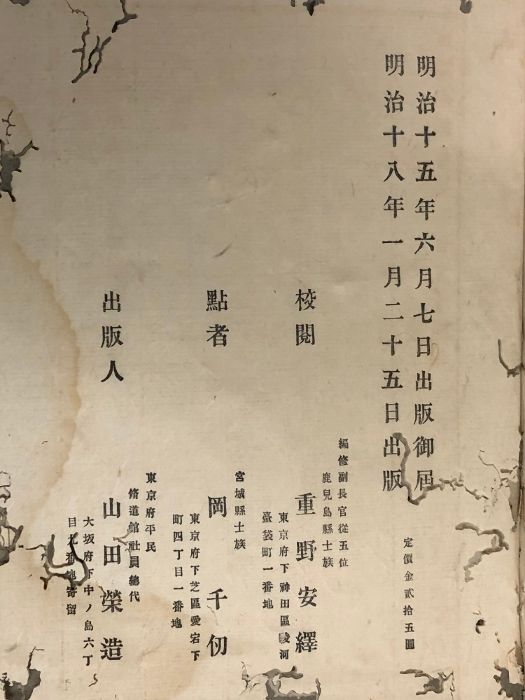 明治十五年六月七日出版御屆
明治十八年一月二十五日出版
定價金貳拾五圓
編修副長官從五位
鹿兒島縣士族
校閲 重野安繹
東京府下神田區駿河
臺袋町一番地
宮城縣士族
點者 岡千仞
東京府下芝區愛宕下
町四丁目一番地
東京府平民
脩道館社員總代
出版人 山田榮造
大坂府下中ノ島六丁
目九番地寄留